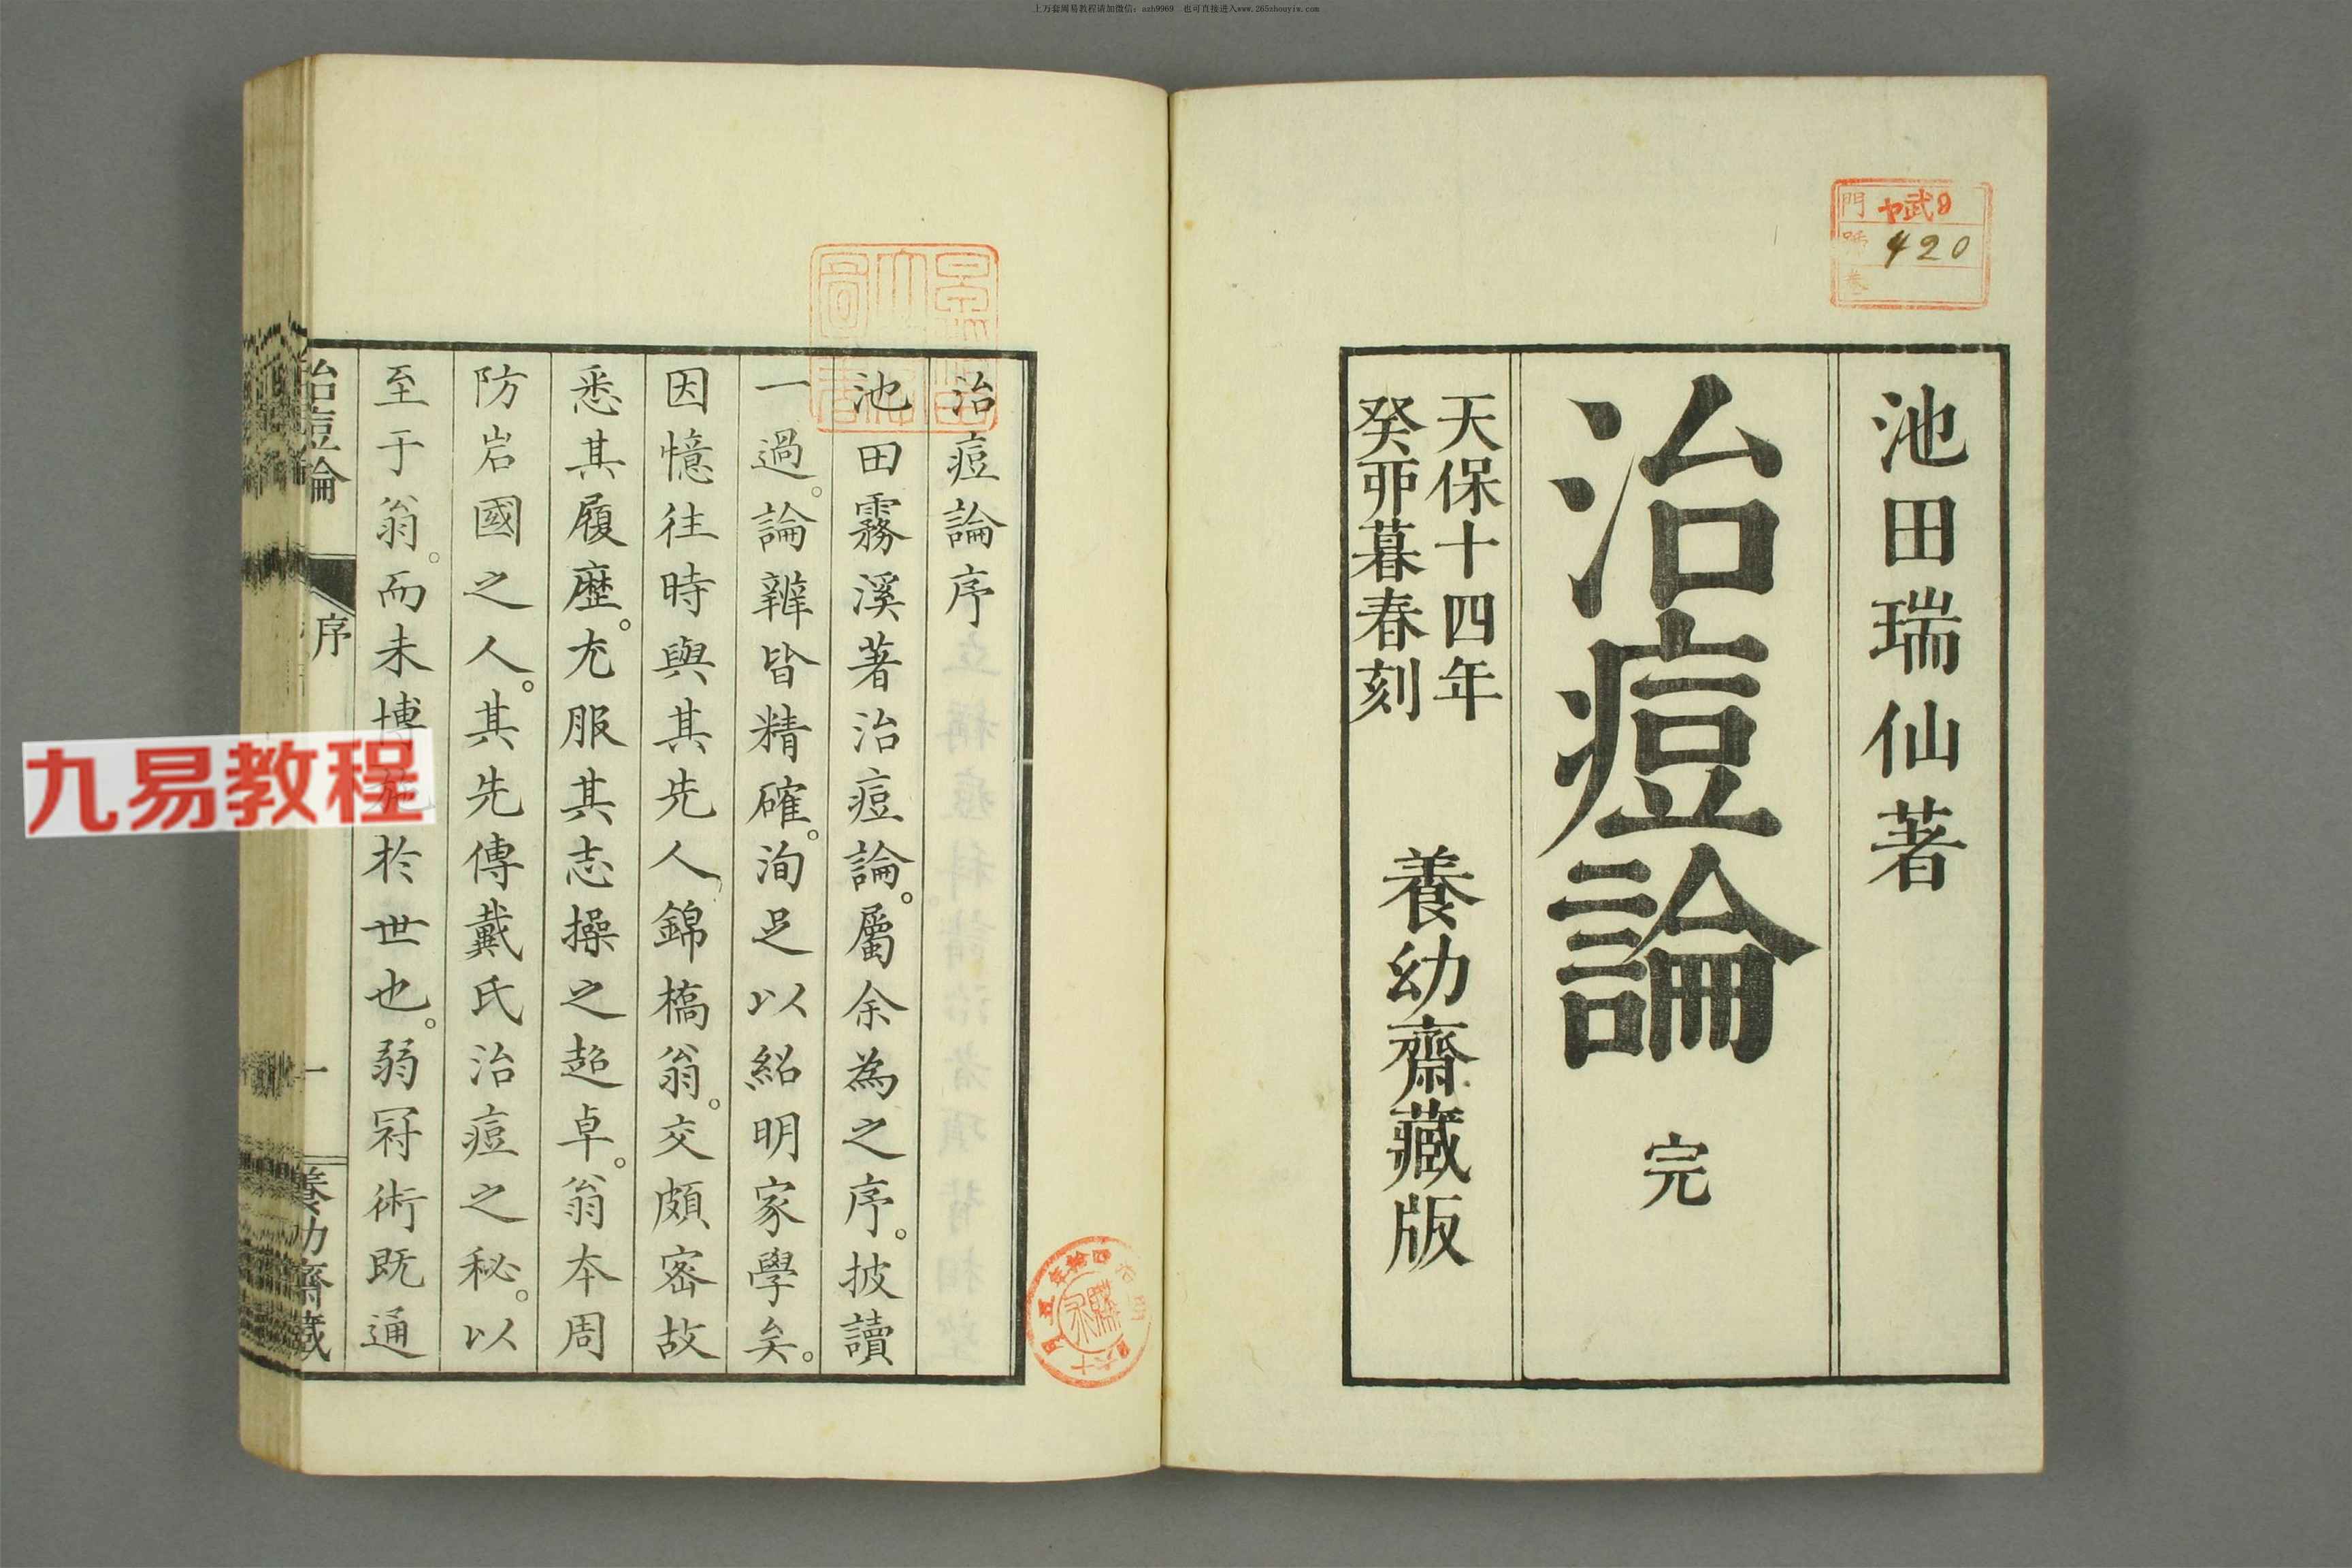 上万套周易教程请加微信：azh9969 也可直接进入www.265zhouyiw.com
門 ヤ武9
號 420
巻
池田瑞仙著
治痘論 完
天保十四年
癸卯暮春刻
養幼齋藏版
治痘論序
池田霧溪著治痘論。屬余為之序。披讀
一過。論辨皆精確。洵足以紹明家學矣。
因憶往時與其先人錦橋翁。交頗密故
悉其履歷。尤服其志操之超卓。翁本周
防岩國之人。其先傳戴氏治痘之秘。以
至于翁。而未博施於世也。弱冠術既通
治痘論 序 一 養幼齋藏
九易教程